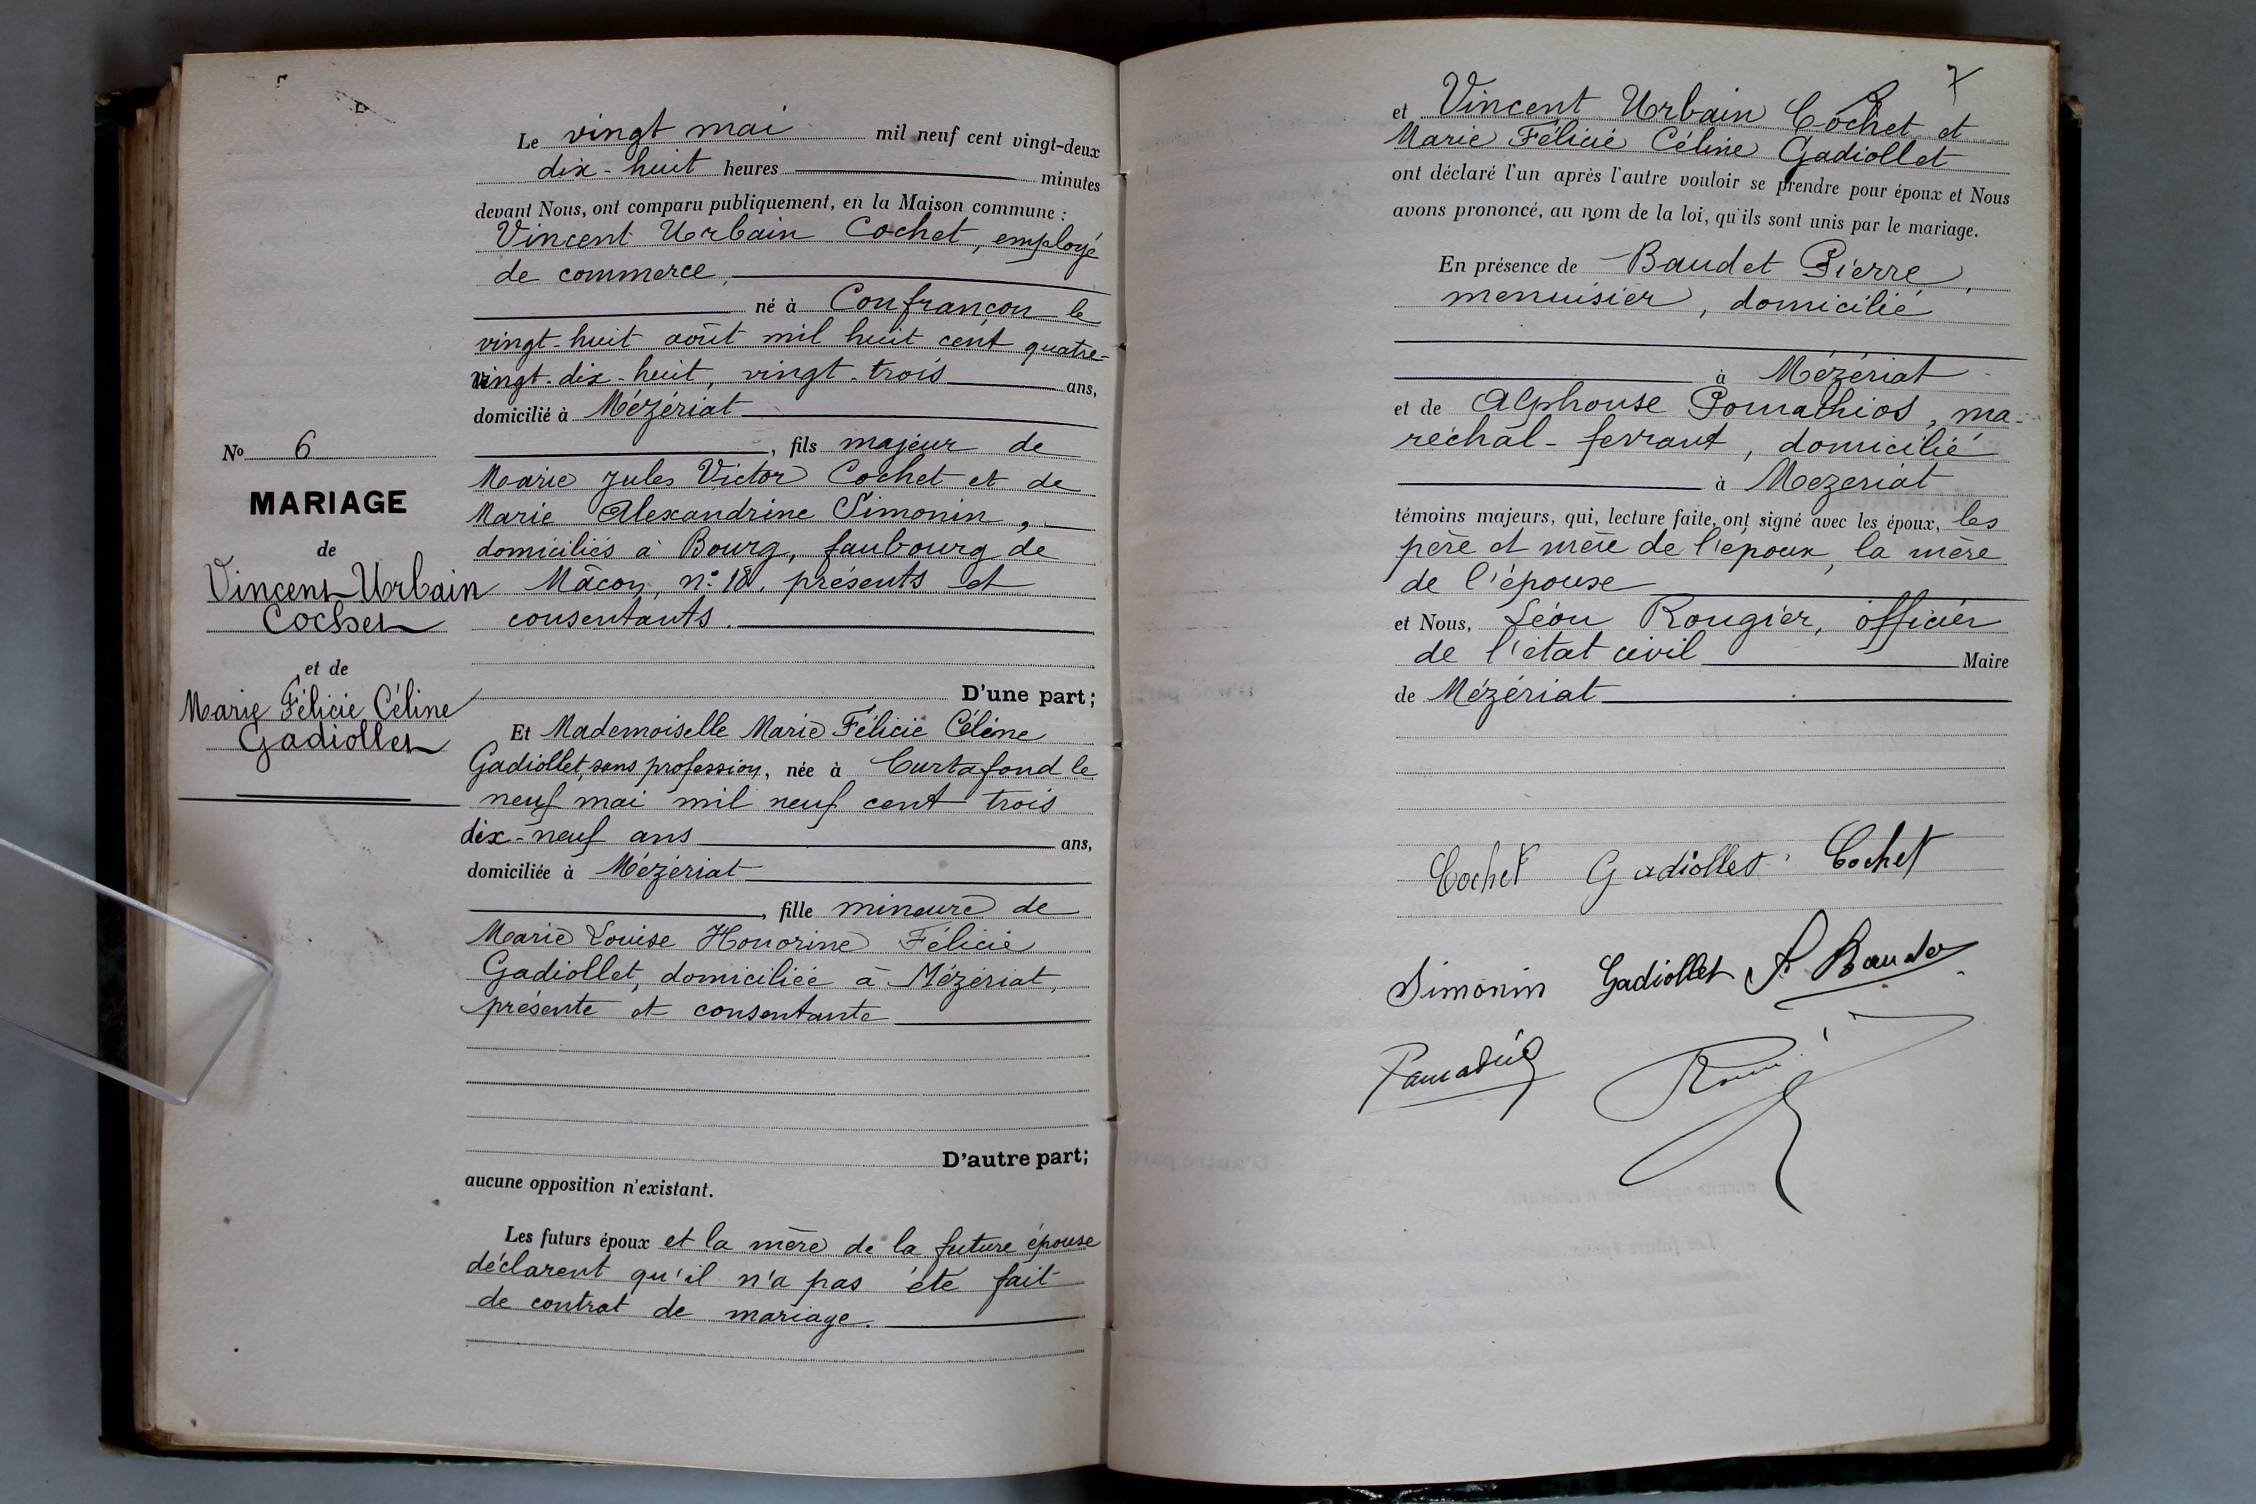 Le vingt mai mil neuf cent vingt-deux
dix-huit heures minutes
devant Nous, ont comparu publiquement, en la Maison commune :
Vincent Urbain Cochet, employé
de commerce,
né à Confrançon le
vingt-huit août mil huit cent quatre-
vingt-dix-huit, vingt-trois ans,
domicilié à Mézériat
, fils majeur de
Marie Jules Victor Cochet et de
Marie Alexandrine Simonin,
domiciliés à Bourg, faubourg de
Mâcon, n° 18, présents et
consentants.
D'une part;
Et Mademoiselle Marie Félicie Céline
Gadiollet, sans profession, née à Curtafond le
neuf mai mil neuf cent trois
dix-neuf ans ans,
domiciliée à Mézériat
, fille mineure de
Marie Louise Honorine Félicie
Gadiollet, domiciliée à Mézériat,
présente et consentante
D'autre part;
aucune opposition n'existant.
Les futurs époux et la mère de la future épouse
déclarent qu'il n'a pas été fait
de contrat de mariage.
No 6
MARIAGE
de
Vincent Urbain
Cochet
et de
Marie Félicie Céline
Gadiollet
7
et Vincent Urbain Cochet et
Marie Félicie Céline Gadiollet
ont déclaré l'un après l'autre vouloir se prendre pour époux et Nous
avons prononcé, au nom de la loi, qu'ils sont unis par le mariage.
En présence de Baudet Pierre,
menuisier, domicilié
à Mézériat
et de Alphonse Pomathios, ma-
réchal-ferrant, domicilié
à Mezeriat
témoins majeurs, qui, lecture faite, ont signé avec les époux, les
père et mère de l'époux, la mère
de l'épouse
et Nous, Léon Rougier, officier
de l'état civil Maire
de Mézériat
Cochet Gadiollet Cochet
Simonin Gadiollet P. Baudet